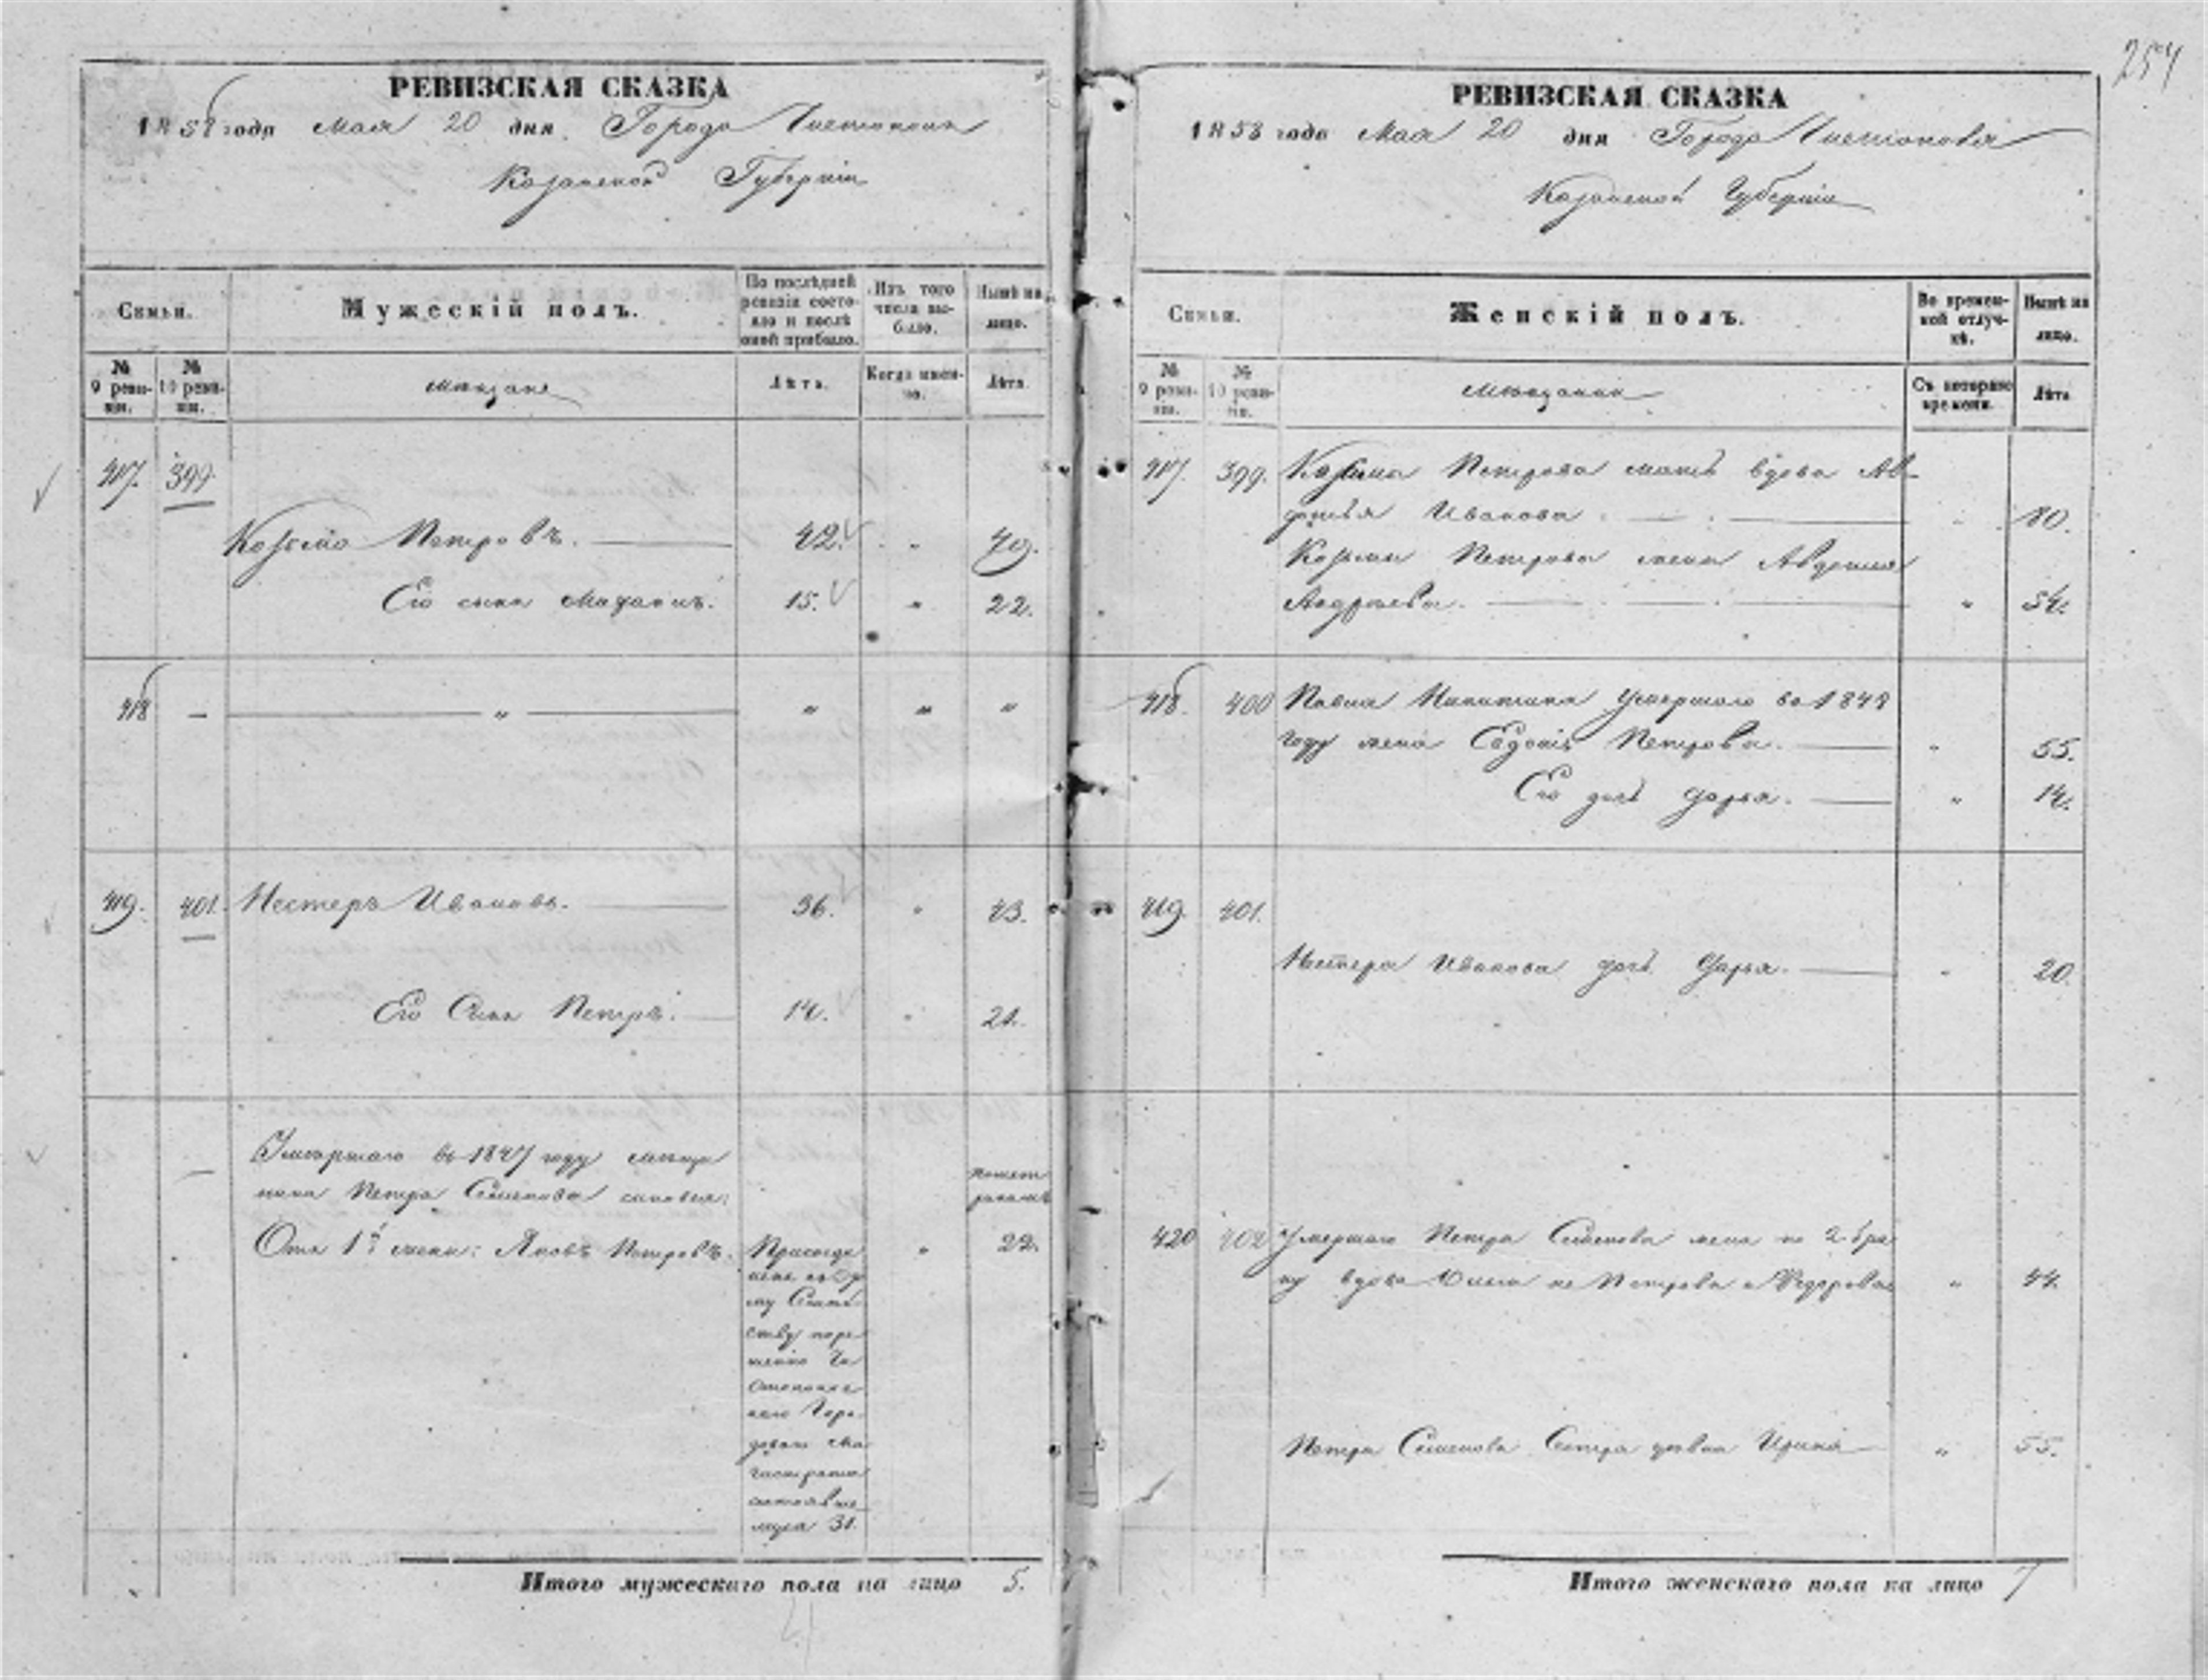 254
РЕВИЗСКАЯ СКАЗКА
1858 года Мая 20 дня Города Чистополя
Казанской Губерніи
Семьи.
Мужескій полъ.
По послѣдней ревизіи состояло и послѣ оной прибыло.
Изъ того числа выбыло.
Нынѣ на лицо.
№ 9 ревизіи.
№ 10 ревизіи.
мѣщане
Лѣта.
Когда именно.
Лѣта.
417. 399.
Козьма Петровъ. 42. „ 49.
Его сынъ 15. „ 22.
418 — „ „ „ „
419. 401. Нестеръ Ивановъ. 36. „ 43.
Его Сынъ Петръ. 14. „ 21.
Умершаго въ 1847 году мѣща
нина Петра Семенова сыновья:
От 1й жены: Яковъ Петровъ. „ 22.
му
ству по рѣ
шенію Чи
стопольска
го Горо
доваго Ма
гистрата
состоявше
муся 31.
Итого мужескаго пола на лицо 5.
РЕВИЗСКАЯ СКАЗКА
1858 года Мая 20 дня Города Чистополя
Казанской Губерніи
Семьи.
Женскій полъ.
Во временной отлучкѣ.
Нынѣ на лицо.
№ 9 ревизіи.
№ 10 ревизіи.
мѣщанки
Съ котораго времени.
Лѣта.
417. 399. Козьмы Петрова мать вдова Ав
дотья Иванова. „ 80.
Козьмы Петрова жена Авдотья
Андреева. „ 54.
418. 400 Никитина умершаго въ 1848
году жена Петрова. „ 55.
Его дочь Дарья. „ 14.
419. 401.
Нестера Иванова дочь Дарья. „ 20.
420 402 Умершаго Петра Семенова жена по 2 бра
ку вдова не Петрова а Федорова „ 44.
Петра Семенова Сестра дѣвка Ирина „ 55.
Итого женскаго пола на лицо 7